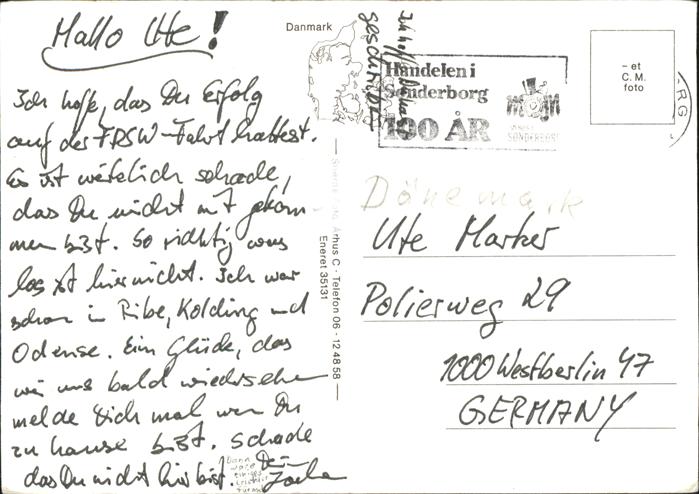 Hallo Ute!
Ich hoffe, das Du Erfolg
auf der FDSW-Fahrt hattest.
Es ist wirklich schade,
das Du nicht mit gekom-
men bist. So richtig was
los ist hier nicht. Ich war
schon in Ribe, Kolding und
Odense. Ein Glück, das
wir uns bald wiedersehen
melde Dich mal wen Du
zu hause bist. Schade
das Du nicht hier bist. Dein
Danmark
Ich
geschrieben
Handelen i
Sønderborg
100 ÅR
SØNDERBORG
- et
C. M.
foto
Århus C - Telefon 06 - 12 48 58
Eneret 35131
Dänemark
Ute Marker
Polierweg 29
1000 Westberlin 47
GERMANY